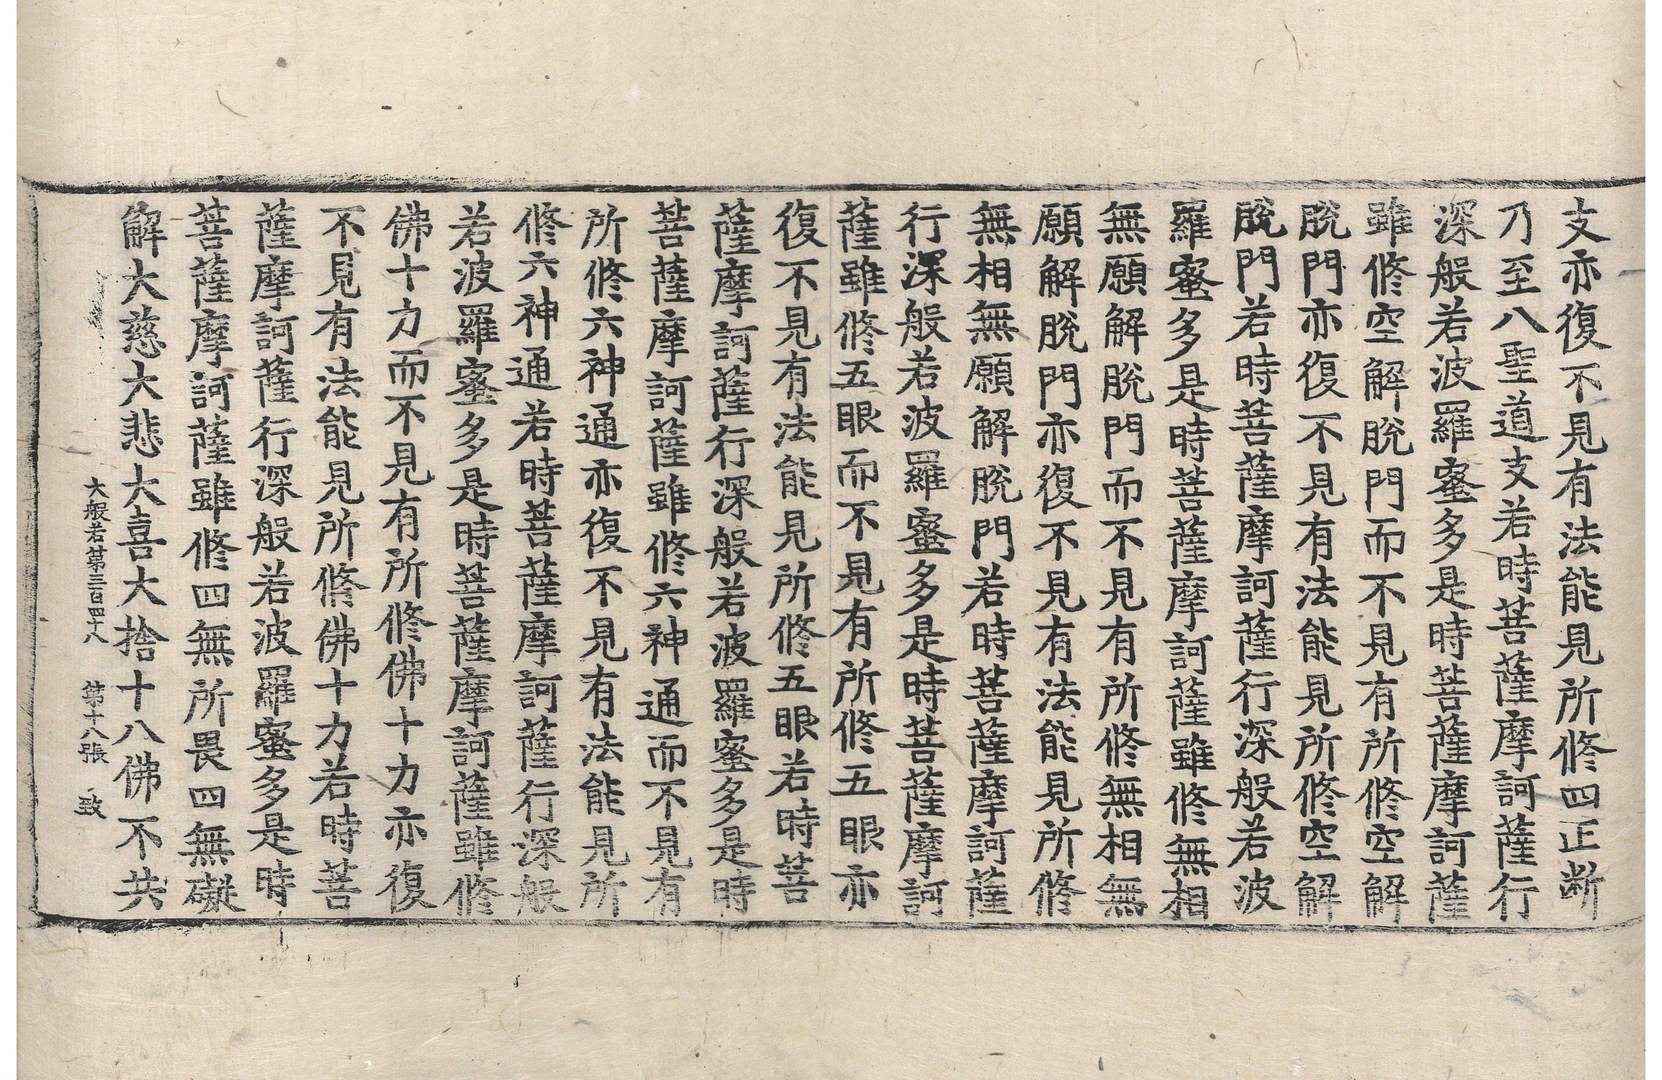 支亦復不見有法能見所修四正斷
乃至八聖道支若時菩薩摩訶薩行
深般若波羅蜜多是時菩薩摩訶薩
雖修空解脫門而不見有所修空解
脫門亦復不見有法能見所修空解
脫門若時菩薩摩訶薩行深般若波
羅蜜多是時菩薩摩訶薩雖修無相
無願解脫門而不見有所修無相無
願解脫門亦復不見有法能見所修
無相無願解脫門若時菩薩摩訶薩
行深般若波羅蜜多是時菩薩摩訶
薩雖修五眼而不見有所修五眼亦
復不見有法能見所修五眼若時菩
薩摩訶薩行深般若波羅蜜多是時
菩薩摩訶薩雖修六神通而不見有
所修六神通亦復不見有法能見所
修六神通若時菩薩摩訶薩行深般
若波羅蜜多是時菩薩摩訶薩雖修
佛十力而不見有所修佛十力亦復
不見有法能見所修佛十力若時菩
薩摩訶薩行深般若波羅蜜多是時
菩薩摩訶薩雖修四無所畏四無礙
解大慈大悲大喜大捨十八佛不共
大般若第三百四十八 第十八張 致